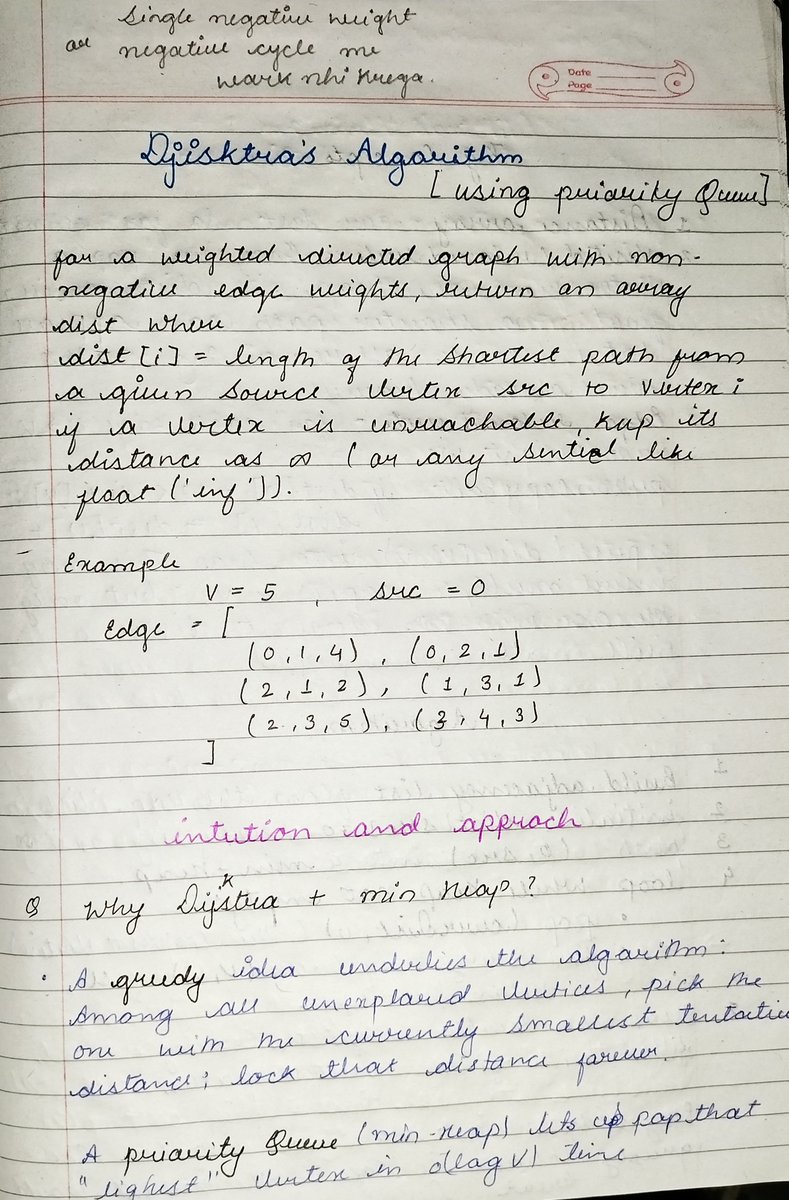 Single negative weight
or negative cycle me
work nhi krega.
Date
Page
Djisktra's Algorithm
[using priority Queue]
for a weighted directed graph with non-
negative edge weights, return an array
dist where
dist [i] = length of the shortest path from
a given source vertex src to vertex i
if a vertex is unreachable, keep its
distance as ∞ (or any sentiel like
float ('inf')).
Example
V = 5 , src = 0
Edge = [
(0,1,4) , (0,2,1)
(2,1,2), (1,3,1)
(2,3,5), (3,4,3)
]
intution and approch
Q Why Dijkstra + min heap?
• A greedy idea underlies the algorithm:
Among all unexplored vertices, pick the
one with the currently smallest tentative
distance; lock that distance forever.
A priority Queue (min-heap) lets us pop that
"lighest" vertex in o(log V) time